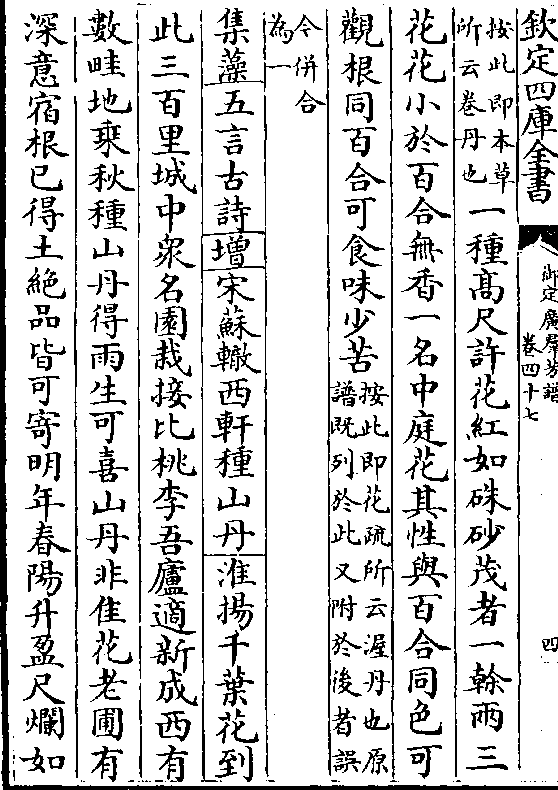 欽定四庫全書
御定廣羣芳譜
卷四十七
四
按此即本草
所云卷丹也
一種髙尺許花紅如硃砂茂者一榦兩三
花花小於百合無香一名中庭花其性與百合同色可
觀根同百合可食味少苦
按此即花疏所云渥丹也原
譜既列於此又附於後者誤
今併合
為一
集藻五言古詩增宋蘇轍西軒種山丹淮揚千葉花到
此三百里城中衆名園栽接比桃李吾廬適新成西有
數畦地乘秋種山丹得雨生可喜山丹非佳花老圃有
深意宿根已得土絶品皆可寄明年春陽升盈尺爛如